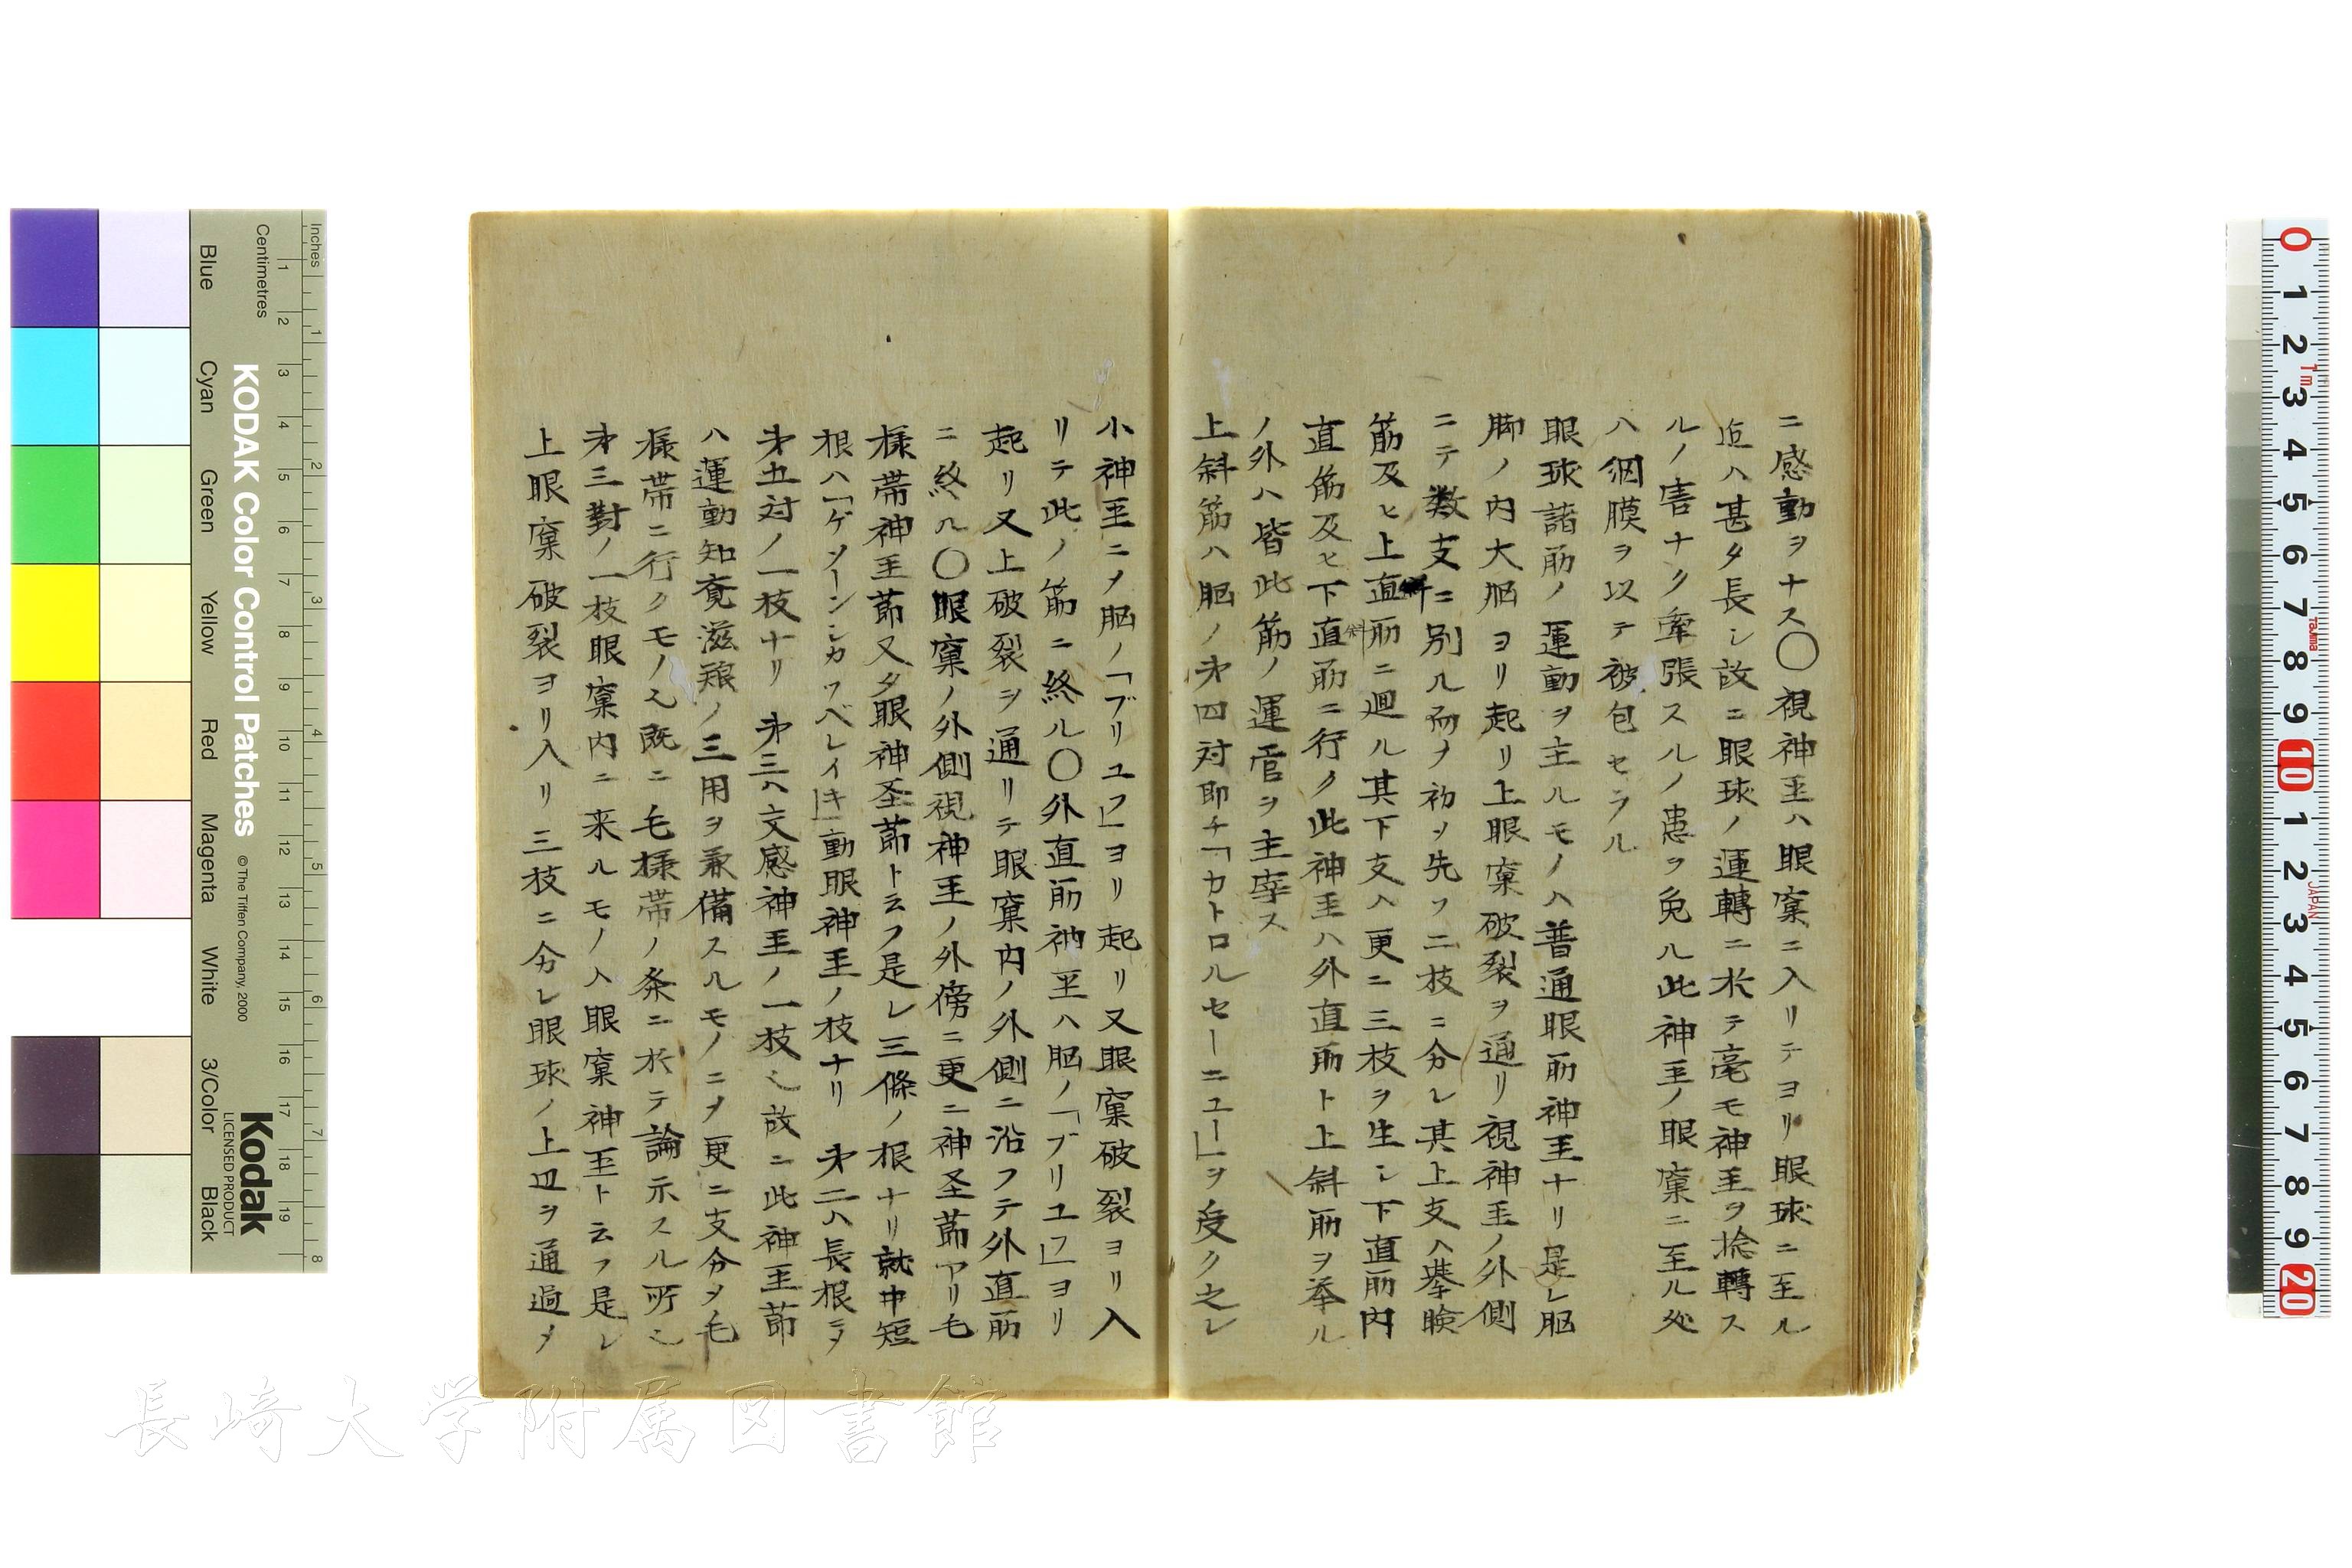 ニ感動ヲナス〇視神圣ハ眼窠ニ入リテヨリ眼球ニ至ル
迠ハ甚タ長シ故ニ眼球ノ運轉ニ於テ毫モ神圣ヲ捻轉ス
ルノ害ナク牽張スルノ患ヲ免ル此神圣ノ眼窠ニ至ル処
ハ網膜ヲ以テ被包セラル
眼球諸筋ノ運動ヲ主ルモノハ普通眼筋神圣ナリ是レ脳
脚ノ内大脳ヨリ起リ上眼窠破裂ヲ通リ視神圣ノ外側
ニテ数支ニ別ル而メ初ヲ先ツ二枝ニ分レ其上支ハ擧瞼
筋及ヒ上直筋ニ廻ル其下支ハ更ニ三枝ヲ生シ下直筋内
直筋及ヒ下直筋ニ行ク此神圣ハ外直筋ト上斜筋ヲ牽ル
斜
ノ外ハ皆此筋ノ運営ヲ主宰ス
上斜筋ハ脳ノ第四対即チ「カトロルセーニユー」ヲ受ク之レ
小神圣ニメ脳ノ「ブリユフ」ヨリ起リ又眼窠破裂ヨリ入
リテ此ノ筋ニ終ル〇外直筋神圣ハ脳ノ「ブリユフ」ヨリ
起リ又上破裂ヲ通リテ眼窠内ノ外側ニ沿フテ外直筋
ニ終ル〇眼窠ノ外側視神圣ノ外傍ニ更ニ神圣節アリ毛
様帯神圣節又タ眼神圣節ト云フ是レ三條ノ根ナリ就中短
根ハ「ゲメーンシカフベレイキ」動眼神圣ノ枝ナリ 第二ハ長根ニメ
第五対ノ一枝ナリ 第三ハ交感神圣ノ一枝也故ニ此神圣節
ハ運動知覚滋養ノ三用ヲ兼備スルモノニメ更ニ支分メ毛
様帯ニ行クモノ也既ニ毛様帯ノ条ニ於テ論示スル所也
第三對ノ一枝眼窠内ニ来ルモノハ眼窠神圣ト云フ是レ
上眼窠破裂ヨリ入リ三枝ニ分レ眼球ノ上辺ヲ通過メ
KODAK Color Control Patches
© The Tiffen Company, 2000
Kodak
LICENSED PRODUCT
Inches
Centimetres
Blue
Cyan
Green
Yellow
Red
Magenta
White
3/Color
Black
長崎大学附属図書館